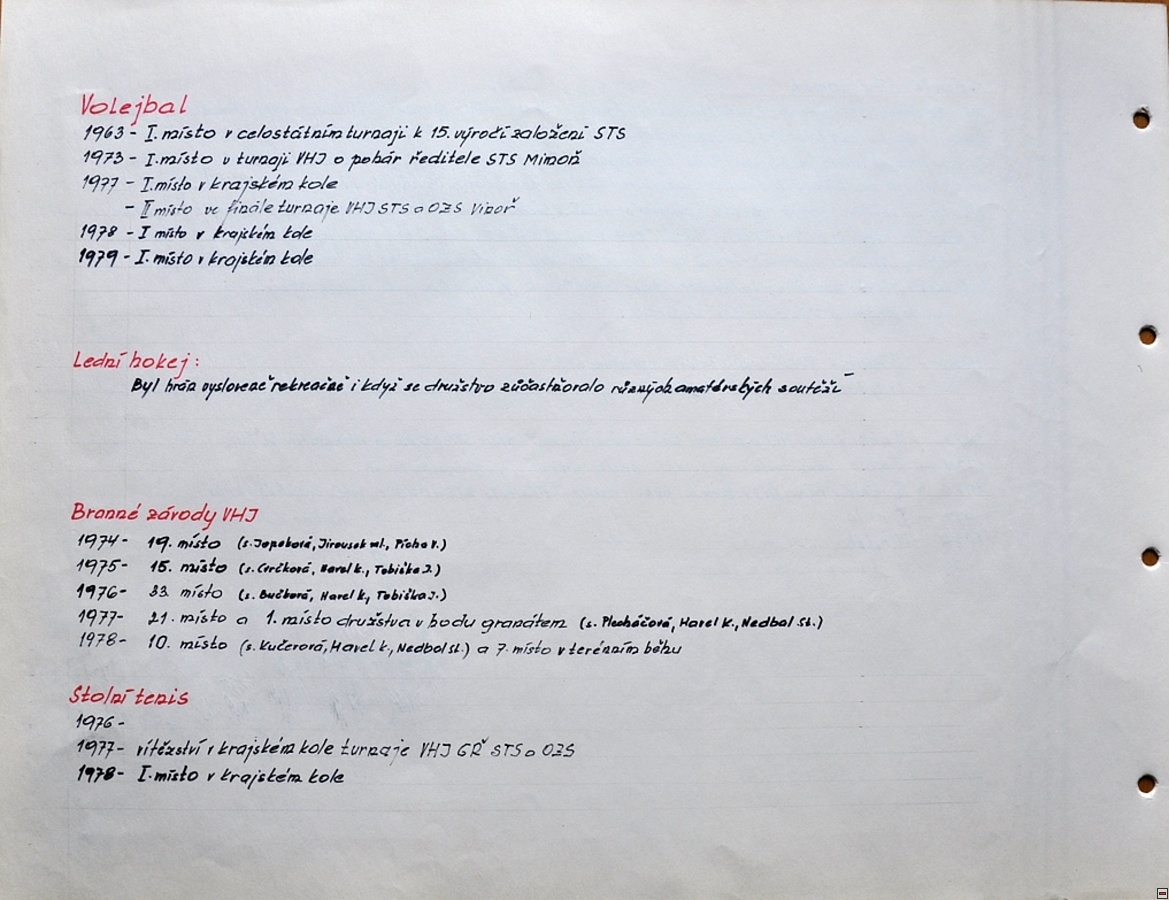 Volejbal
1963 - I. místo v celostátním turnaji k 15. výročí založení STS
1973 - I. místo v turnaji VHJ o pohár ředitele STS Mimoň
1977 - I. místo v krajském kole
- II místo ve finále turnaje VHJ STS a OZS
1978 - I místo v krajském kole
1979 - I. místo v krajském kole
Lední hokej:
Byl hrán vysloveně rekreačně i když se družstvo zúčastňovalo různých amatérských soutěží
Branné závody VHJ
1974 - 19. místo (s. Jirousek ml., Pícha V.)
1975 - 15. místo (s. Havel K., Tobiška J.)
1976 - 33 místo (s. Bučková, Havel K, Tobiška J.)
1977 - 21. místo a 1. místo družstva v hodu granátem (s. Plecháčová, Havel K., Nedbal St.)
1978 - 10. místo (s. Kučerová, Havel K., Nedbal St.) a 7. místo v terénním běhu
Stolní tenis
1976 -
1977 - vítězství v krajském kole turnaje VHJ GŘ STS a OZS
1978 - I. místo v krajském kole